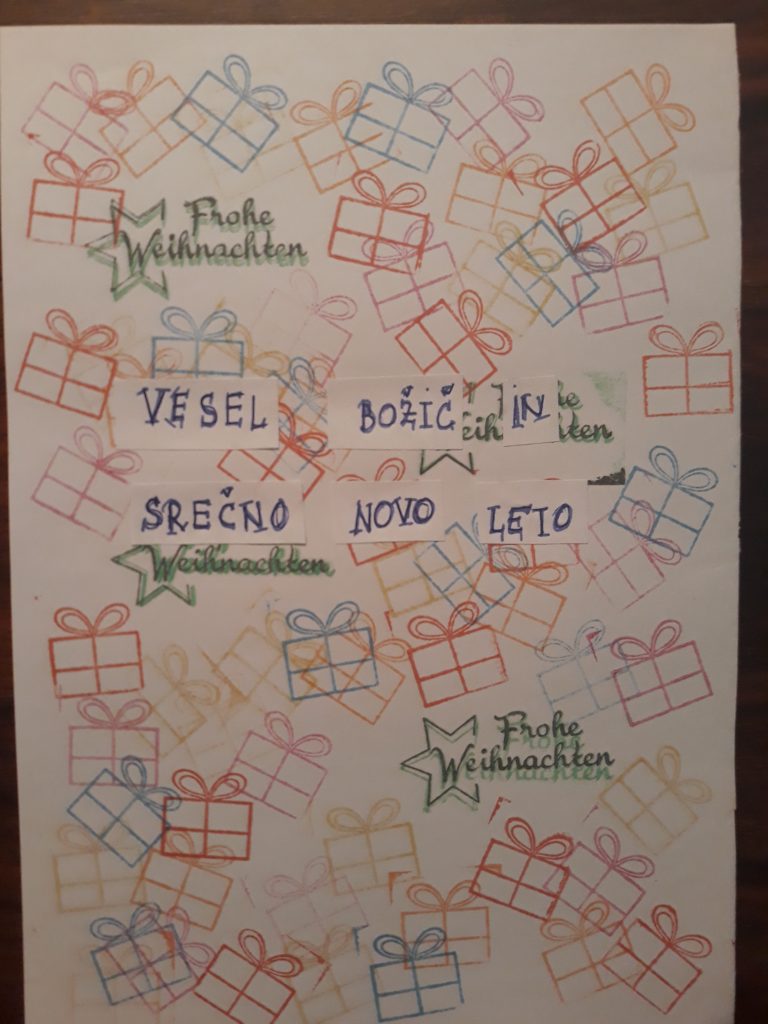 Frohe
Weihnachten
VESEL BOŽIČ IN
SREČNO NOVO LETO
Weihnachten
Frohe
Weihnachten